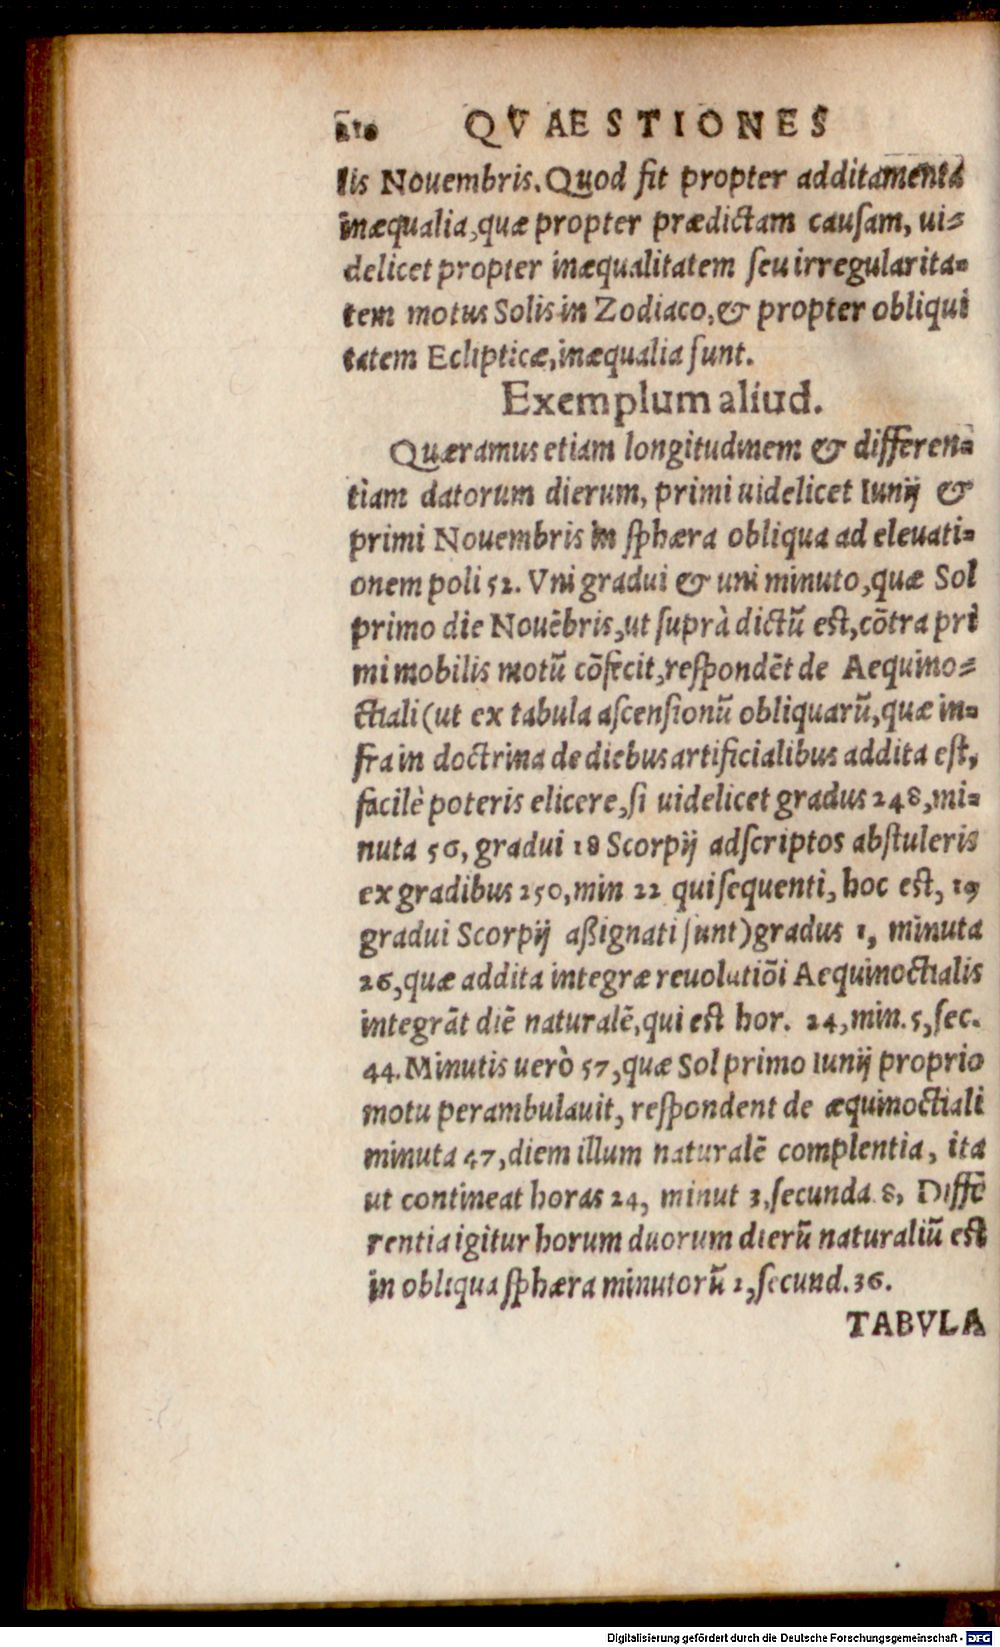 210 QVAESTIONES
lis Nouembris. Quod fit propter additamenta
inæqualia, quæ propter prædictam causam, ui-
delicet propter inæqualitatem seu irregularita-
tem motus Solis in Zodiaco, & propter obliqui
tatem Eclipticæ, inæqualia sunt.
Exemplum aliud.
Quæramus etiam longitudinem & differen-
tiam datorum dierum, primi uidelicet Iunij &
primi Nouembris in sphæra obliqua ad eleuati-
onem poli 52. Vni gradui & uni minuto, quæ Sol
primo die Nouẽbris, ut suprà dictũ est, cõtra pri
mi mobilis motũ cõfecit, respondẽt de Aequino-
ctiali (ut ex tabula ascensionũ obliquarũ, quæ in-
fra in doctrina de diebus artificialibus addita est,
facilè poteris elicere, si uidelicet gradus 248, mi-
nuta 56, gradui 18 Scorpij adscriptos abstuleris
ex gradibus 250, min 22 qui sequenti, hoc est, 19
gradui Scorpij aßignati sunt) gradus 1, minuta
26, quæ addita integræ reuolutiõi Aequinoctialis
integrãt diẽ naturalẽ, qui est hor. 24, min. 5, sec.
44. Minutis uerò 57, quæ Sol primo Iunij proprio
motu perambulauit, respondent de æquinoctiali
minuta 47, diem illum naturalẽ complentia, ita
ut contineat horas 24, minut 3, secunda 8, Diffẽ
rentia igitur horum duorum dierũ naturaliũ est
in obliqua sphæra minutorũ 2, secund. 36.
TABVLA
Digitalisierung gefördert durch die Deutsche Forschungsgemeinschaft - DFG